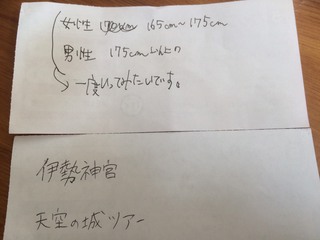 女性 165cm~175cm
男性 175cm以上
一度いってみたいです。
伊勢神宮
天空の城ツアー